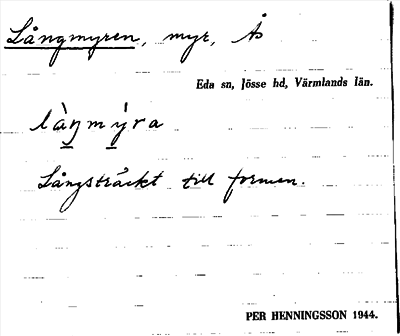 Långmyren, myr, Ås
Eda sn, Jösse hd, Värmlands län.
làŋmýra
Långsträckt till formen.
PER HENNINGSSON 1944.